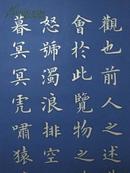 觀也前人之述
會於此覽物之
怒號濁浪排空
暮冥冥虎嘯猿